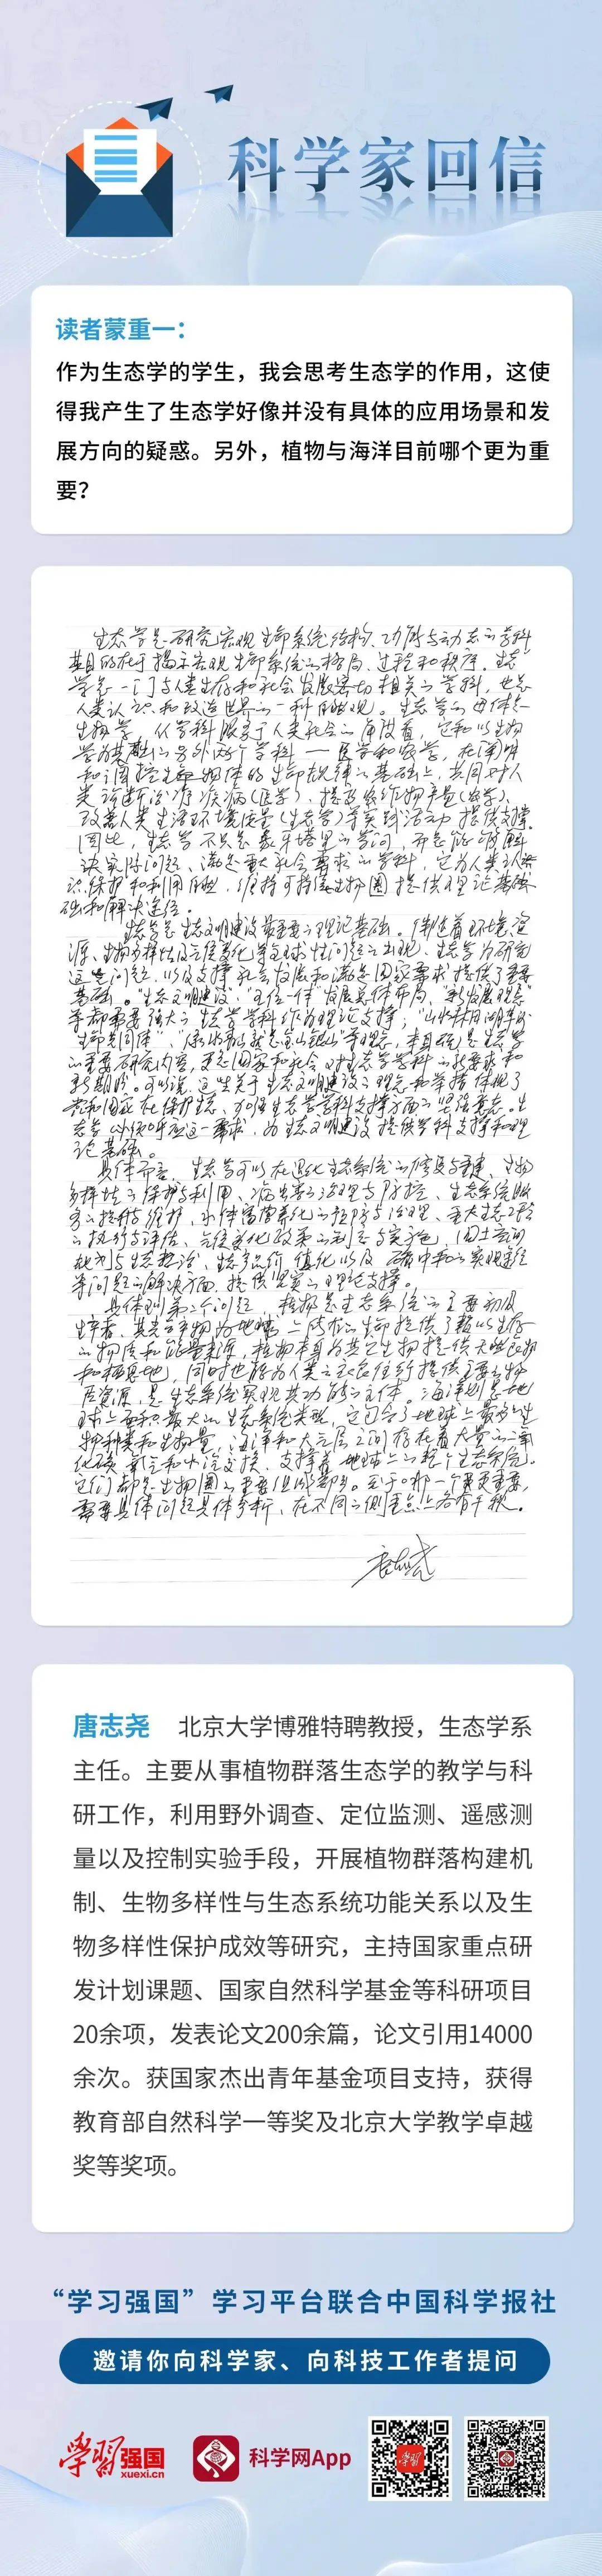 科学家回信
读者蒙重一：
作为生态学的学生，我会思考生态学的作用，这使
得我产生了生态学好像并没有具体的应用场景和发
展方向的疑惑。另外，植物与海洋目前哪个更为重
要？
生态学是研究宏观生命系统结构、功能与动态的学科
其目的在于揭示宏观生命系统的格局、过程和秩序。生态
学是一门与人类生存和社会发展密切相关的学科，也是
人类认识和改造世界的一种自然观。生态学的母体是
生物学，从学科服务于人类社会的角度看，它和以生物
学为基础的另外两个学科——医学和农学，在阐明
和调控生命物体的生命规律的基础上，共同对人
类诊断治疗疾病(医学)、提高农作物产量(农学)、
改善人类生活环境质量(生态学)等实践活动提供支撑。
因此，生态学不只是象牙塔里的学问，而是能够解
决实际问题、满足重大社会需求的学科，它为人类认
识、保护和利用自然，维持可持续生物圈提供理论基
础和解决途径。
生态学是生态文明建设最重要的理论基础。伴随着环境、资
源、生物多样性及气候变化等全球性问题的出现，生态学为研究
这些问题，以及支撑社会发展和满足国家需求提供了重要
基础。“生态文明建设”、“五位一体”发展总体布局、“新发展理念”
等都需要强大的生态学学科作为理论支撑；“山水林田湖草沙
生命共同体”、“绿水青山就是金山银山”等理念，本身就是生态学
的重要研究内容，更是国家和社会对生态学学科的新要求和
新期盼。可以说，这些关于生态文明建设的理念和举措体现了
党和国家在保护生态、加强生态学学科支撑方面的坚强意志。生
态学必须呼应这一需求，为生态文明建设提供学科支撑和理
论基础。
具体而言，生态学可以在退化生态系统的修复与重建、生物
多样性的保护与利用、病虫害的治理与防控、生态系统服
务的提升与维护、水体富营养化的预防与治理、重大生态工程
的执行与评估、气候变化政策的制定与实施、国土空间
规划与生态整治、生态产品价值化以及碳中和的实现途径
等问题的解决方面，提供坚实的理论支撑。
具体到第二个问题，植物是生态系统的主要初级
生产者，其光合产物为地球上所有的生命提供了赖以生存
的物质和能量来源，植物本身为其它生物提供天然食物
和栖息地，同时也能为人类的衣食住行提供主要的物
质资源，是生态系统实现其功能的主体。海洋则是地
球上面积最大的生态系统类型，它包含了地球上最多的生
物种类和生物量，海洋和大气层之间存在着大量的二氧
化碳、氧气和水汽交换，支撑着地球上的整个生态系统。
它们都是生物圈的重要组成部分。至于哪一个更重要，
需要具体问题具体分析，在不同的侧重点上各有千秋。
唐志尧
唐志尧 北京大学博雅特聘教授，生态学系
主任。主要从事植物群落生态学的教学与科
研工作，利用野外调查、定位监测、遥感测
量以及控制实验手段，开展植物群落构建机
制、生物多样性与生态系统功能关系以及生
物多样性保护成效等研究，主持国家重点研
发计划课题、国家自然科学基金等科研项目
20余项，发表论文200余篇，论文引用14000
余次。获国家杰出青年基金项目支持，获得
教育部自然科学一等奖及北京大学教学卓越
奖等奖项。
“学习强国”学习平台联合中国科学报社
邀请你向科学家、向科技工作者提问
学习强国
xuexi.cn
科学网App